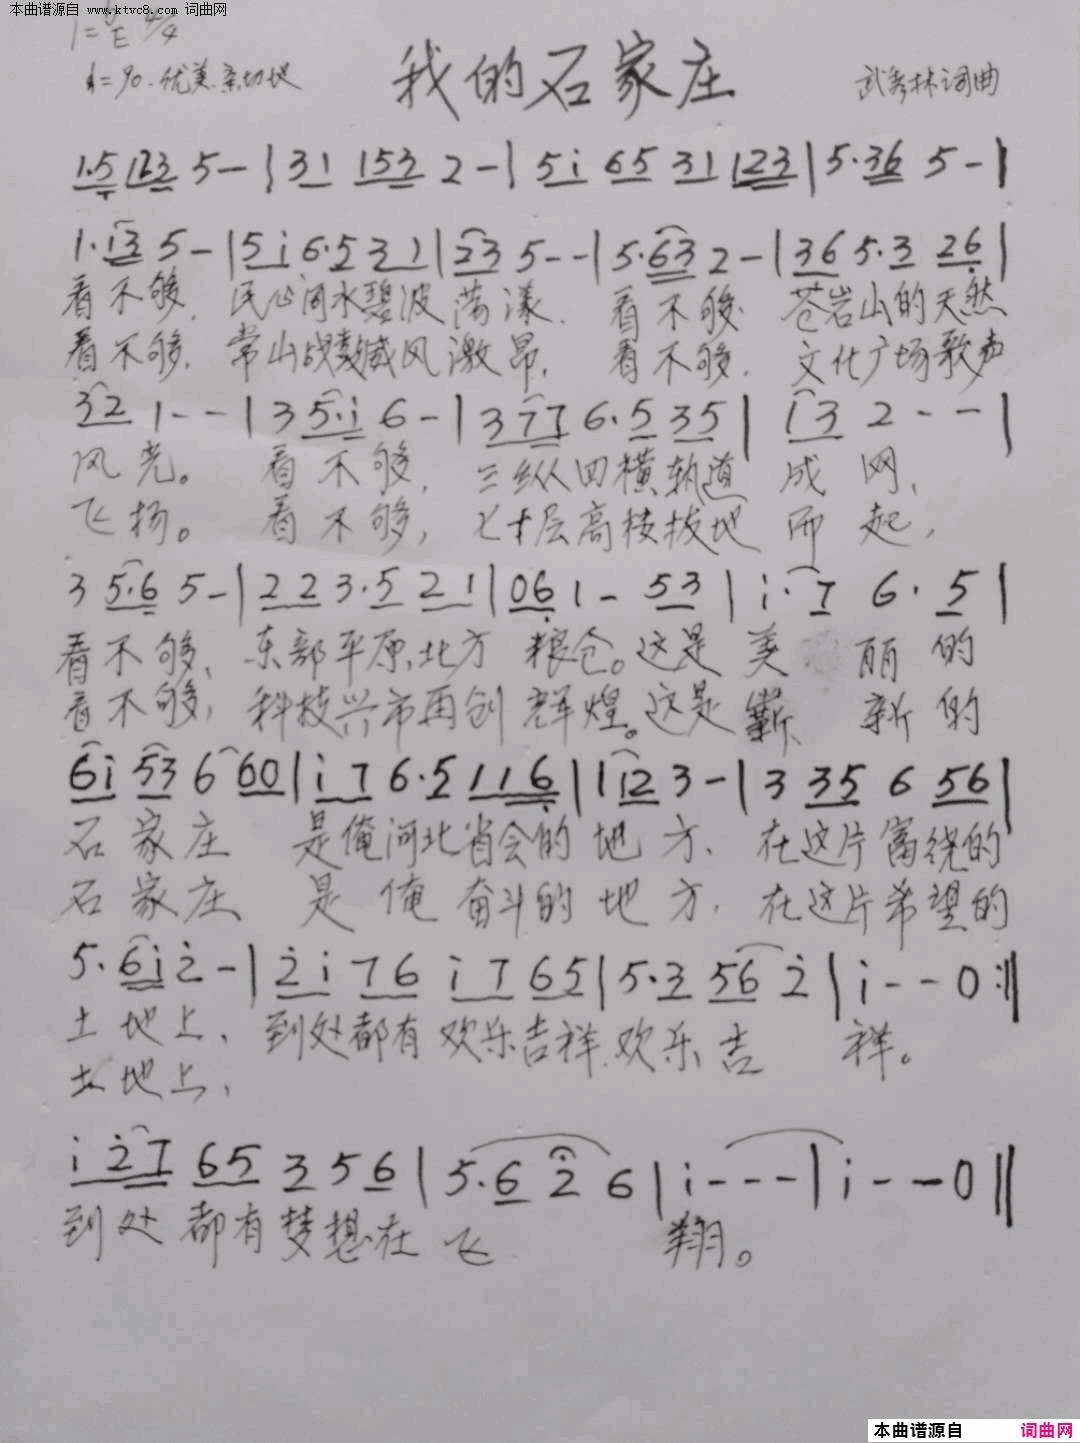 本曲谱源自 www.ktvc8.com 词曲网
1=E 4/4
♩=90.优美亲切地
我的石家庄
武秀林词曲
1·5 123 5 - | 31 153 2 - | 5i 65 31 123 | 5·36 5 - |
1·i3 5 - | 5i 6·5 31 | 23 5 - - | 5·63 2 - | 36 5·3 26 |
看不够, 民心河水碧波荡漾. 看不够. 苍岩山的天然
看不够, 常山战鼓威风激昂, 看不够. 文化广场歌声
32 1 - - | 3 5·i 6 - | 3 77 6·5 35 | i3 2 - - |
风光。 看不够, 三纵四横轨道成网,
飞扬。 看不够, 七十层高楼拔地而起,
3 5·6 5 - | 22 3·5 21 | 06 1 - 53 | i·7 6·5 |
看不够, 东部平原,北方粮仓。这是美丽的
看不够, 科技兴市再创辉煌。这是崭新的
6i 53 6 60 | i7 6·5 116 | 1 12 3 - | 3 35 6 56 |
石家庄 是俺河北省会的地方、在这片富绕的
石家庄 是俺奋斗的地方. 在这片希望的
5·6i 2 - | 2i 76 i7 65 | 5·3 56 2 | i - - 0 :‖
土地上、到处都有欢乐吉祥.欢乐吉祥。
土地上,
i 27 65 3 5 6 | 5·6 2 6 | i - - - | i - - 0 ‖
到处都有梦想在飞翔。
本曲谱源自 词曲网